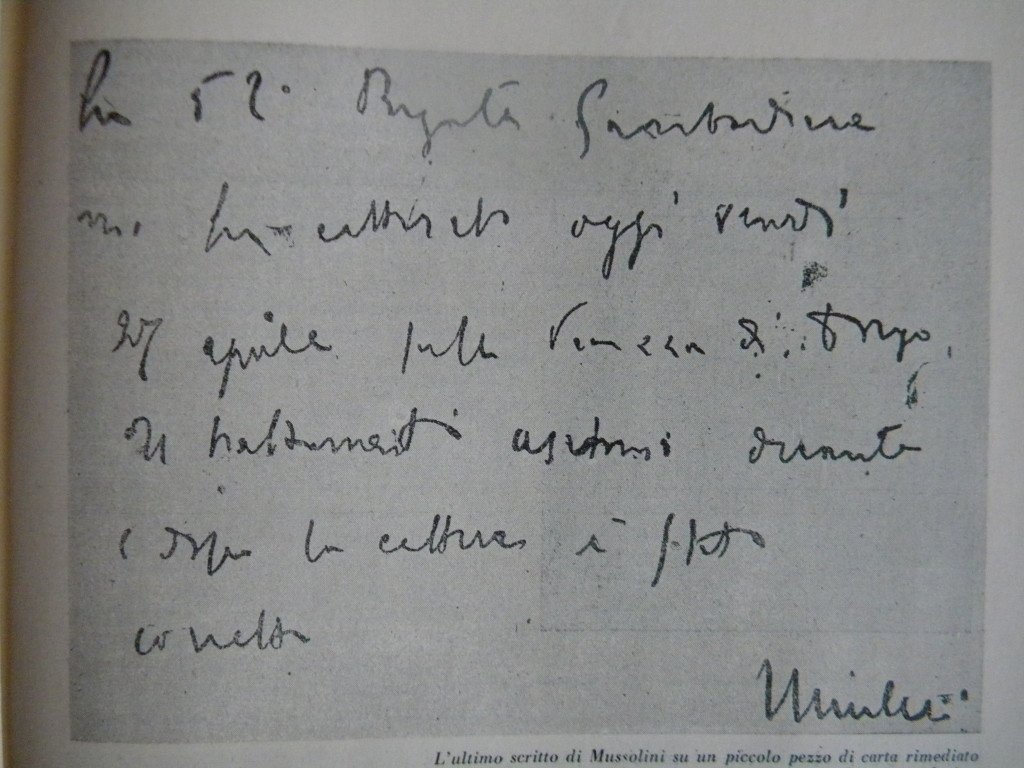 La 52ª Brigata Garibaldina
mi ha catturato oggi venerdì
27 aprile sulla Piazza di Dongo.
Il trattamento usatomi durante
e dopo la cattura è stato
corretto
Mussolini
L'ultimo scritto di Mussolini su un piccolo pezzo di carta rimediato